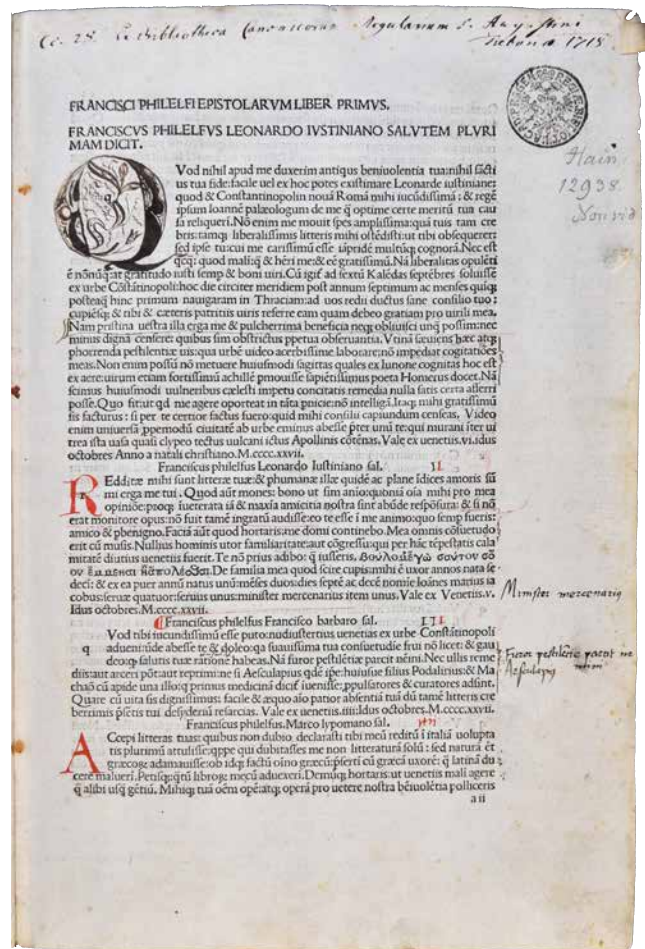 Cc. 28. Ex Bibliotheca Canonicorum Regularium S. Augustini
1715
Hain
12938
FRANCISCI PHILELFI EPISTOLARVM LIBER PRIMVS.
FRANCISCVS PHILELFVS LEONARDO IVSTINIANO SALVTEM PLVRI
MAM DICIT.
QVod nihil apud me duxerim antiqus beniuolentia tua: nihil sācti
us tua fide: facile uel ex hoc potes existimare Leonarde iustiniane:
quod & Constantinopolin nouā Romā mihi iucūdissimā: & regē
ipsum Ioannē palæologum de me q̄ optime certe meritū tua cau
sa reliqueri. Nō enim me mouit spes amplissima: quā tuis tam cre
bris: tamq; liberalissimis litteris mihi ostēdisti: ut tibi obsequerer:
sed ipse tu: cui me carissimū esse iāpridē multūq; cognorā. Nec est
qcq: quod maliq; & heri me: & eē gratissimū. Nā liberalitas opulēti
ē nōnūq; at gratitudo iusti semp & boni uiri. Cū igif ad sextū Kalēdas septēbres soluissē
ex urbe Cōstātinopoli: hoc die circiter meridiem post annum septimum ac menses quiq;
posteaq̄ hinc primum nauigaram in Thraciam: ad uos redii ductus sane consilio tuo:
cupiēsq; & tibi & cæteris patritiis uiris referre eam quam debeo gratiam pro uirili mea.
Nam pristina uestra illa erga me & pulcherrima beneficia neq; obliuisci unq̄ possim: nec
minus dignā censere: quibus sim obstrictus ppetua obseruantia. Vtinā sæuiens hæc atq;
phorrenda pestilentiæ uis: qua urbē uideo acerbissime laborare: nō impediat cogitatiōes
meas. Non enim possū nō metuere huiusmodi sagittas quales ex Iunone cognitas hoc est
ex aere: uirum etiam fortissimū achillē pmouisse sapiētissimus poeta Homerus docet. Nā
scimus huiusmodi uulneribus cælesti impetu concitatis remedia nulla satis certa afferri
posse. Quo fit: ut qd me agere oporteat in tāta pnicie: nō intelligā. Itaq; mihi gratissimū
sis facturus: si per te certior factus fuero: quid mihi consilii capiundum censeas. Video
enim uniuersā ppemodū ciuitatē ab urbe eminus abesse pter unū te: qui murani iter ui
trea ista uasa quasi clypeo tectus uulcani ictus Apollinis cōtēnas. Vale ex uenetiis. vi. idus
octobres Anno a natali christiano. M.cccc.xxvii.
Franciscus philelfus Leonardo Iustiniano sal. II
REdditæ mihi sunt litteræ tuæ: & phumanæ illæ quidē ac plane īdices amoris sū
mi erga me tui. Quod aūt mones: bono ut sim anio: quoniā oīa mihi pro mea
opiniōe: proq; iueterata iā & maxīa amicitia nostra sint abūde respōsura: & si nō
erat monitore opus: nō fuit tamē ingratū audisse: eo te esse i me animo: quo semp fueris:
amico & pbenigno. Faciā aūt quod hortaris: me domi continebo. Mea omnis cōsuetudo
erit cū musis. Nullius hominis utor familiaritate: aut cōgressu: qui per hāc tēpestatis cala
mitatē diutius uenetiis fuerit. Te nō prius adibo: q̄ iusseris.
decī: & ex ea puer annū natus unū: mēses duos: dies septē ac decē nomīe Ioānes marius ia
cobus: seruæ quatuor: seruus unus: minister mercenarius item unus. Vale ex Venetiis. v.
Idus octobres. M.cccc.xxvii.
Minister mercenarius
Franciscus philelfus Francisco barbaro sal. III
Vod tibi iucundissimū esse puto: nudiustertius uenetias ex urbe Constātinopoli
q adueni: ūde abesse te & doleo: qa suauissima tua consuetudīe frui nō licet: & gau
deo: q salutis tuæ rationē habeas. Nā furor pestilētiæ parcit nēmi. Nec ullis reme
diis: aut arceri pōt: aut reprimi: ne si Aesculapius qdē ipse: huiusue filius Podalirius: & Ma
chaō cū apide una illo: q primus medicinā dicif iuenisse: ppulsatores & curatores adsint.
Quare cū uita sis dignissimus: facile & æquo aīo patior absentiā tuā dū tamē litteris cre
berrimis pſētis tui desyderiū resarcias. Vale ex uenetiis. iiii. Idus octobres. M.cccc.xxvii.
Furor pestilentie
Aesculapij
Franciscus philelfus. Marco lypomano sal.
ACcepi litteras tuas: quibus non dubio declarasti tibi meū reditū i italiā uolupta
tis plurimū attulisse: qppe qui dubitasses me non litteraturā solū: sed naturā ēt
græcoq; adamauisse: ob idq; factū oīno græcū: pserti cū græca uxorē: q̄ latinā du
cere maluerī. Petisq; qtū librog; mecū aduexeri. Demūq; hortaris: ut uenetiis mali agere
q̄ alibi usq̄ gētiū. Mihiq; tuā oēm opē: atq; operā pro uetere nostra bēiuolētia polliceris
a ii